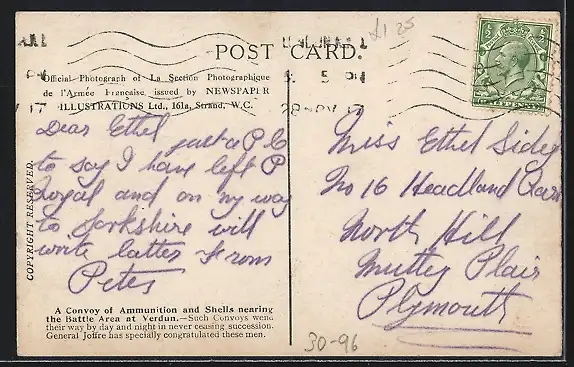 £1 25
POST CARD.
Official Photograph of La Section Photographique
de l'Armée Française issued by NEWSPAPER
ILLUSTRATIONS Ltd., 161a, Strand, W.C.
Dear Ethel
just a P C
to say I have left P
and on my way
to Yorkshire will
write latter From
Peter
COPYRIGHT RESERVED.
A Convoy of Ammunition and Shells nearing
the Battle Area at Verdun.—Such Convoys wend
their way by day and night in never ceasing succession.
General Joffre has specially congratulated these men.
Miss Ethel Sidey
No 16 Headland
North Hill
Mutley Plair
Plymouth
30-96